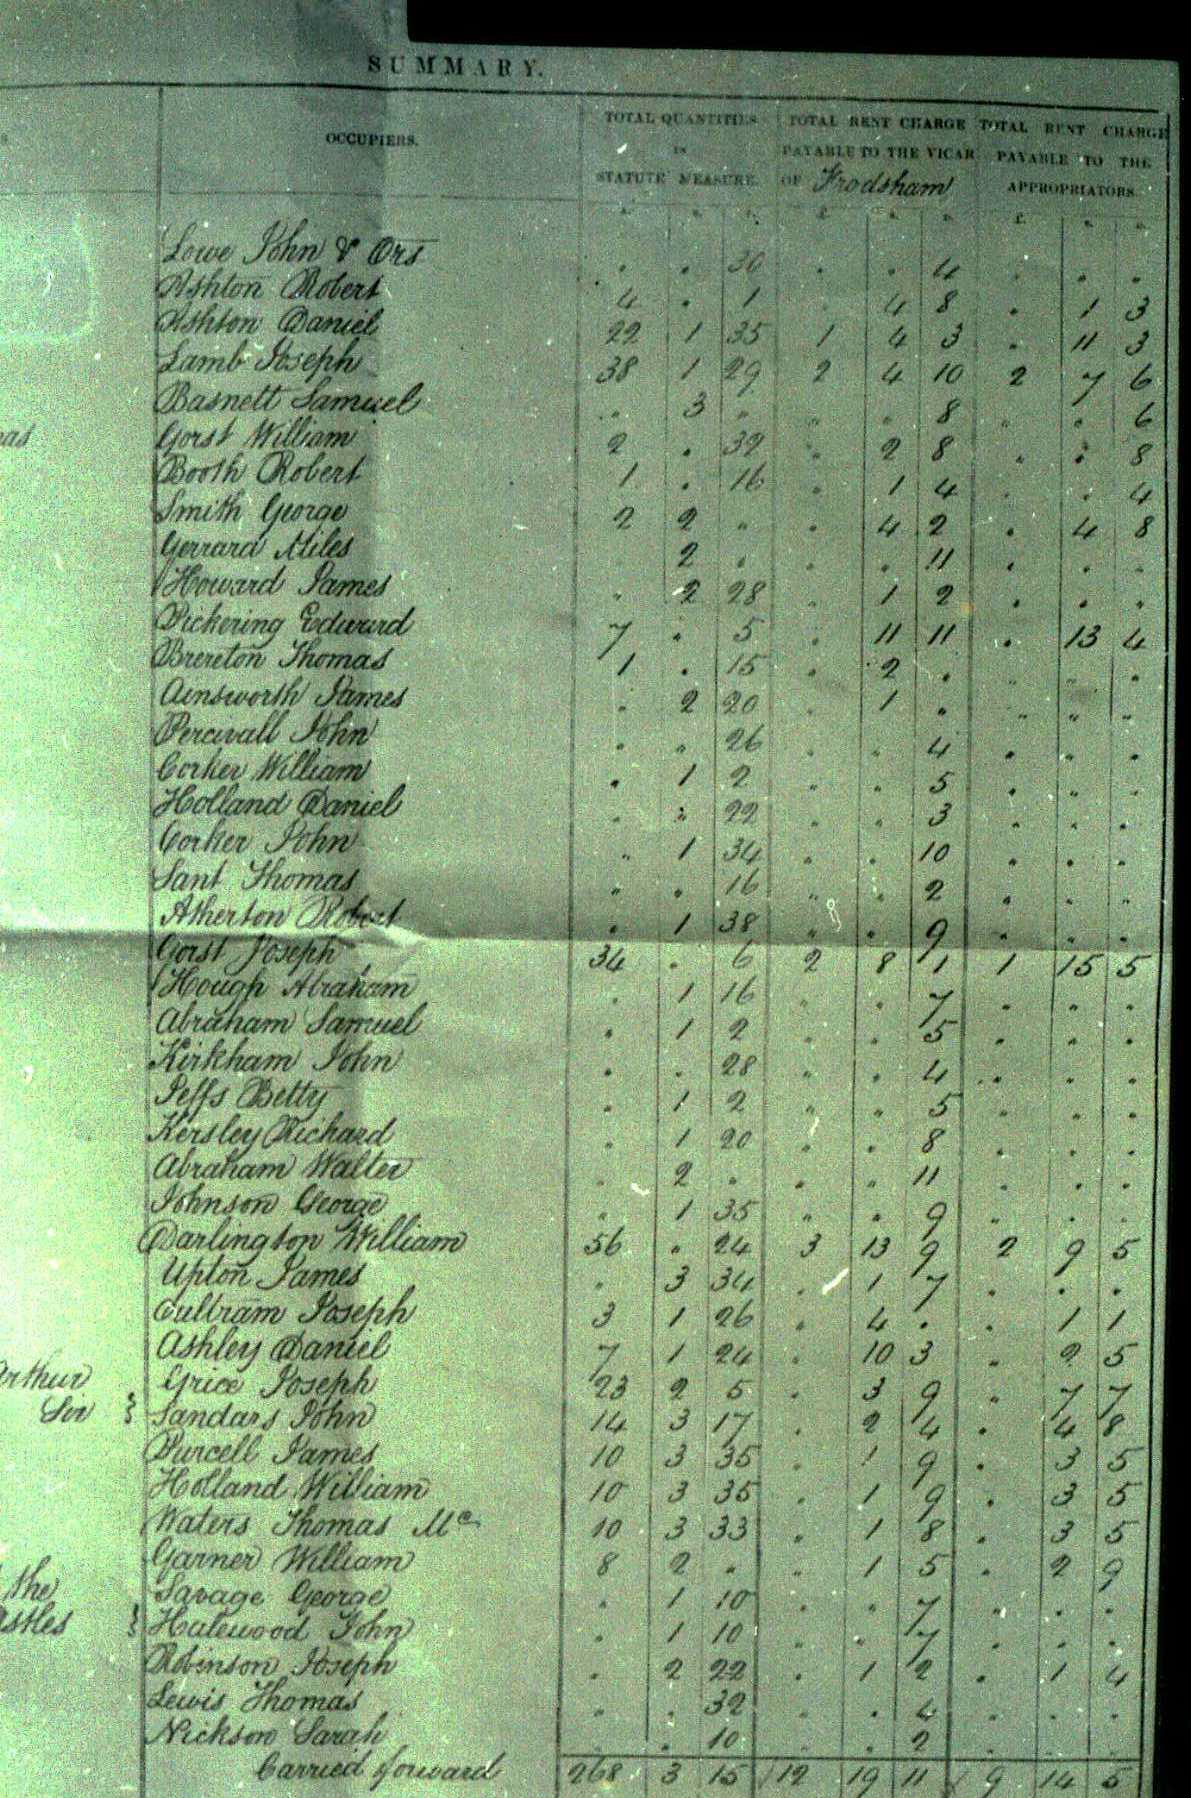 SUMMARY.
OCCUPIERS. TOTAL QUANTITIES TOTAL RENT CHARGE TOTAL RENT CHARGE
IN PAYABLE TO THE VICAR PAYABLE TO THE
STATUTE MEASURE. OF Frodsham APPROPRIATORS.
Lowe John & Ors . . 30 . . 4 . . .
Ashton Robert 4 . 1 . 4 8 . 1 3
Ashton Daniel 22 1 35 1 4 3 . 11 3
Lamb Joseph 38 1 29 2 4 10 2 7 6
Basnett Samuel .. 3 .. . . 8 . . 6
Gorst William 2 . 32 . 2 8 . . 8
Booth Robert 1 . 16 . 1 4 . . 4
Smith George 2 2 .. . 4 2 . 4 8
Gerrard Miles 2 . . . 11 . . .
Howard James . 2 28 . 1 2 . . .
Pickering Edward 7 . 5 . 11 11 . 13 4
Brereton Thomas 1 . 15 . 2 . . . .
Ainsworth James . 2 20 . 1 . . . .
Percivall John . . 26 . . 4 . . .
Corker William . 1 2 . . 5 . . .
Holland Daniel . . 22 . . 3 . . .
Corker John . 1 34 . . 10 . . .
Sant Thomas . . 16 . . 2 . . .
Atherton Robert . 1 38 . . 9 . . .
Gorst Joseph 34 . 6 2 8 1 1 15 5
Hough Abraham . 1 16 . . 7 . . .
Abraham Samuel . 1 2 . . 5 . . .
Kirkham John . . 28 . . 4 . . .
Peffs Betty . 1 2 . . 5 . . .
Kersley Richard . 1 20 . . 8 . . .
Abraham Walter . 2 . . . 11 . . .
Johnson George . 1 35 . . 9 . . .
Darlington William 56 . 24 3 13 9 2 9 5
Upton James . 3 34 . 1 7 . . .
Cultram Joseph 3 1 26 . 4 . . 1 1
Ashley Daniel 7 1 24 . 10 3 . 2 5
Arthur Grice Joseph 23 2 5 . 3 9 . 7 7
Sir } Sandars John 14 3 17 . 2 4 . 4 8
Purcell James 10 3 35 . 1 9 . 3 5
Holland William 10 3 35 . 1 9 . 3 5
Waters Thomas Mc 10 3 33 . 1 8 . 3 5
Garner William 8 2 . . 1 5 . 2 9
the Savage George . 1 10 . . 7 . . .
} Halewood John . 1 10 . . 7 . . .
Robinson Joseph . 2 22 . 1 2 . 1 4
Lewis Thomas . . 32 . . 4 . . .
Nickson Sarah . . 10 . . 2 . . .
Carried forward 268 3 15 12 19 11 9 14 5